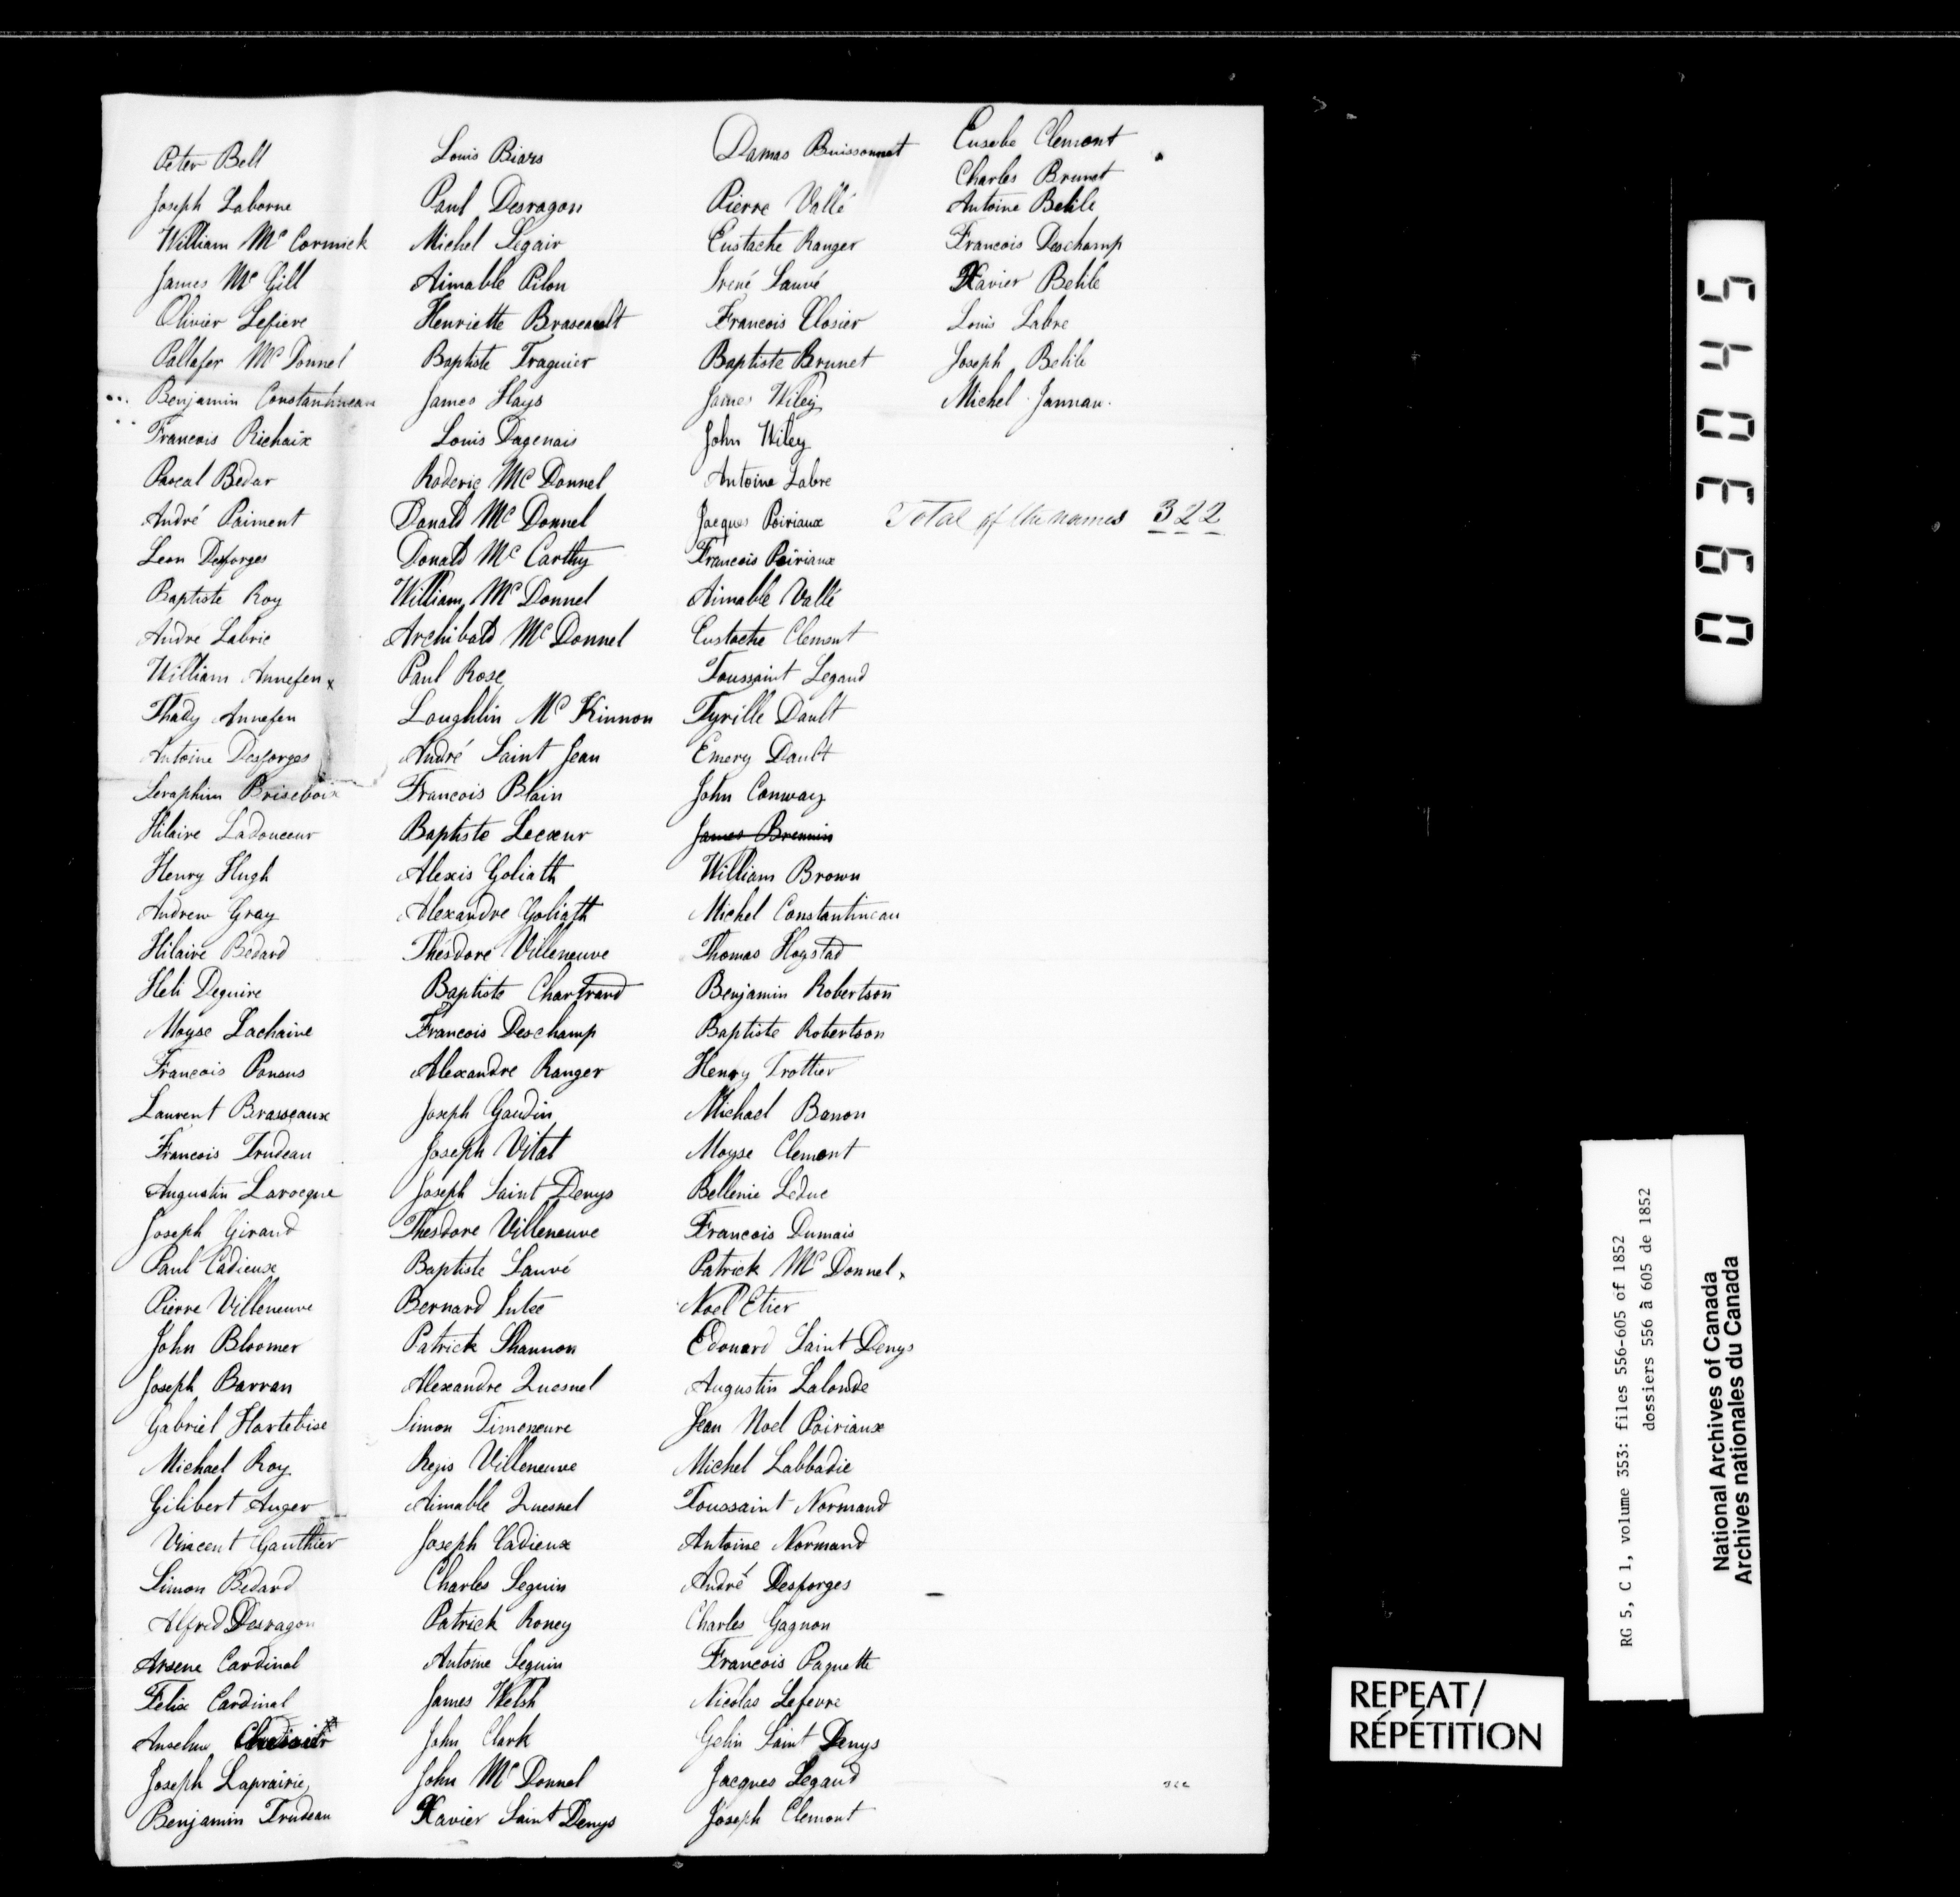 Peter Bell
Joseph Laborne
William Mc Cormick
James Mc Gill
Olivier Lefievre
Pallafer Mc Donnel
Benjamin Constantineau
Francois Richaix
Pascal Bedar
André Paiment
Leon Desforges
Baptiste Roy
André Labrie
William Annefen x
Thady Annefen
Antoine Desforges
Seraphim Brisebois
Hilaire Ladouceur
Henry Hugh
Andrew Gray
Hilaire Bedard
Heli Deguire
Moyse Lachaine
Francois Ponsus
Laurent Brasseaux
Francois Trudeau
Augustin Larocque
Joseph Giraud
Paul Cadieux
Pierre Villeneuve
John Bloomer
Joseph Barran
Gabriel Hartebise
Michael Roy
Gilibert Auger
Vincent Gauthier
Simon Bedard
Alfred Desragon
Arsene Cardinal
Felix Cardinal
Anselme
Joseph Laprairie
Benjamin Trudeau
Louis Biars
Paul Desragon
Michel Legair
Aimable Pilon
Henriette Braseault
Baptiste Traguier
James Hays
Louis Dagenais
Roderic Mc Donnel
Donald Mc Donnel
Donald Mc Carthy
William Mc Donnel
Archibald Mc Donnel
Paul Rose
Loughlin Mc Kinnon
André Saint Jean
Francois Blain
Baptiste Lecœur
Alexis Goliath
Alexandre Goliath
Théodore Villeneuve
Baptiste Chartrand
Francois Deschamp
Alexandre Ranger
Joseph Gaudin
Joseph Vitat
Joseph Saint Denys
Theodore Villeneuve
Baptiste Sauvé
Bernard
Patrick Shannon
Alexandre Quesnel
Simon Timoneure
Regis Villeneuve
Aimable Quesnel
Joseph Cadieux
Charles Seguin
Patrick Roney
Antoine Seguin
James Welsh
John Clark
John Mc Donnel
Xavier Saint Denys
Damas Buissonnet
Pierre Vallé
Eustache Ranger
Irené Sauvé
Francois Closier
Baptiste Brunet
James Wiley
John Wiley
Antoine Labre
Jacques Poiriaux
Francois Poiriaux
Aimable Vallé
Eustache Clement
Toussaint Legaud
Tyrille Dault
Emery Dault
John Conway
James Brennin
William Brown
Michel Constantineau
Thomas Hogstad
Benjamin Robertson
Baptiste Robertson
Henry Trottier
Michael Banon
Moyse Clement
Bellenie Leduc
Francois Dumais
Patrick Mc Donnel x
Noel Etier
Edouard Saint Denys
Augustin Lalonde
Jean Noel Poiriaux
Michel Labbadie
Toussaint Normand
Antoine Normand
André Desforges
Charles Gagnon
Francois Paquette
Nicolas Lefevre
Gelin Saint Denys
Jacques Legaud
Joseph Clement
Eusebe Clement
Charles Brunet
Antoine Belile
Francois Deschamp
Xavier Belile
Louis Labre
Joseph Belile
Michel Jannau.
Total of the names 322
322
093045
RG 5, C 1, volume 353: files 556-605 of 1852
dossiers 556 à 605 de 1852
National Archives of Canada
Archives nationales du Canada
REPEAT/
RÉPÉTITION